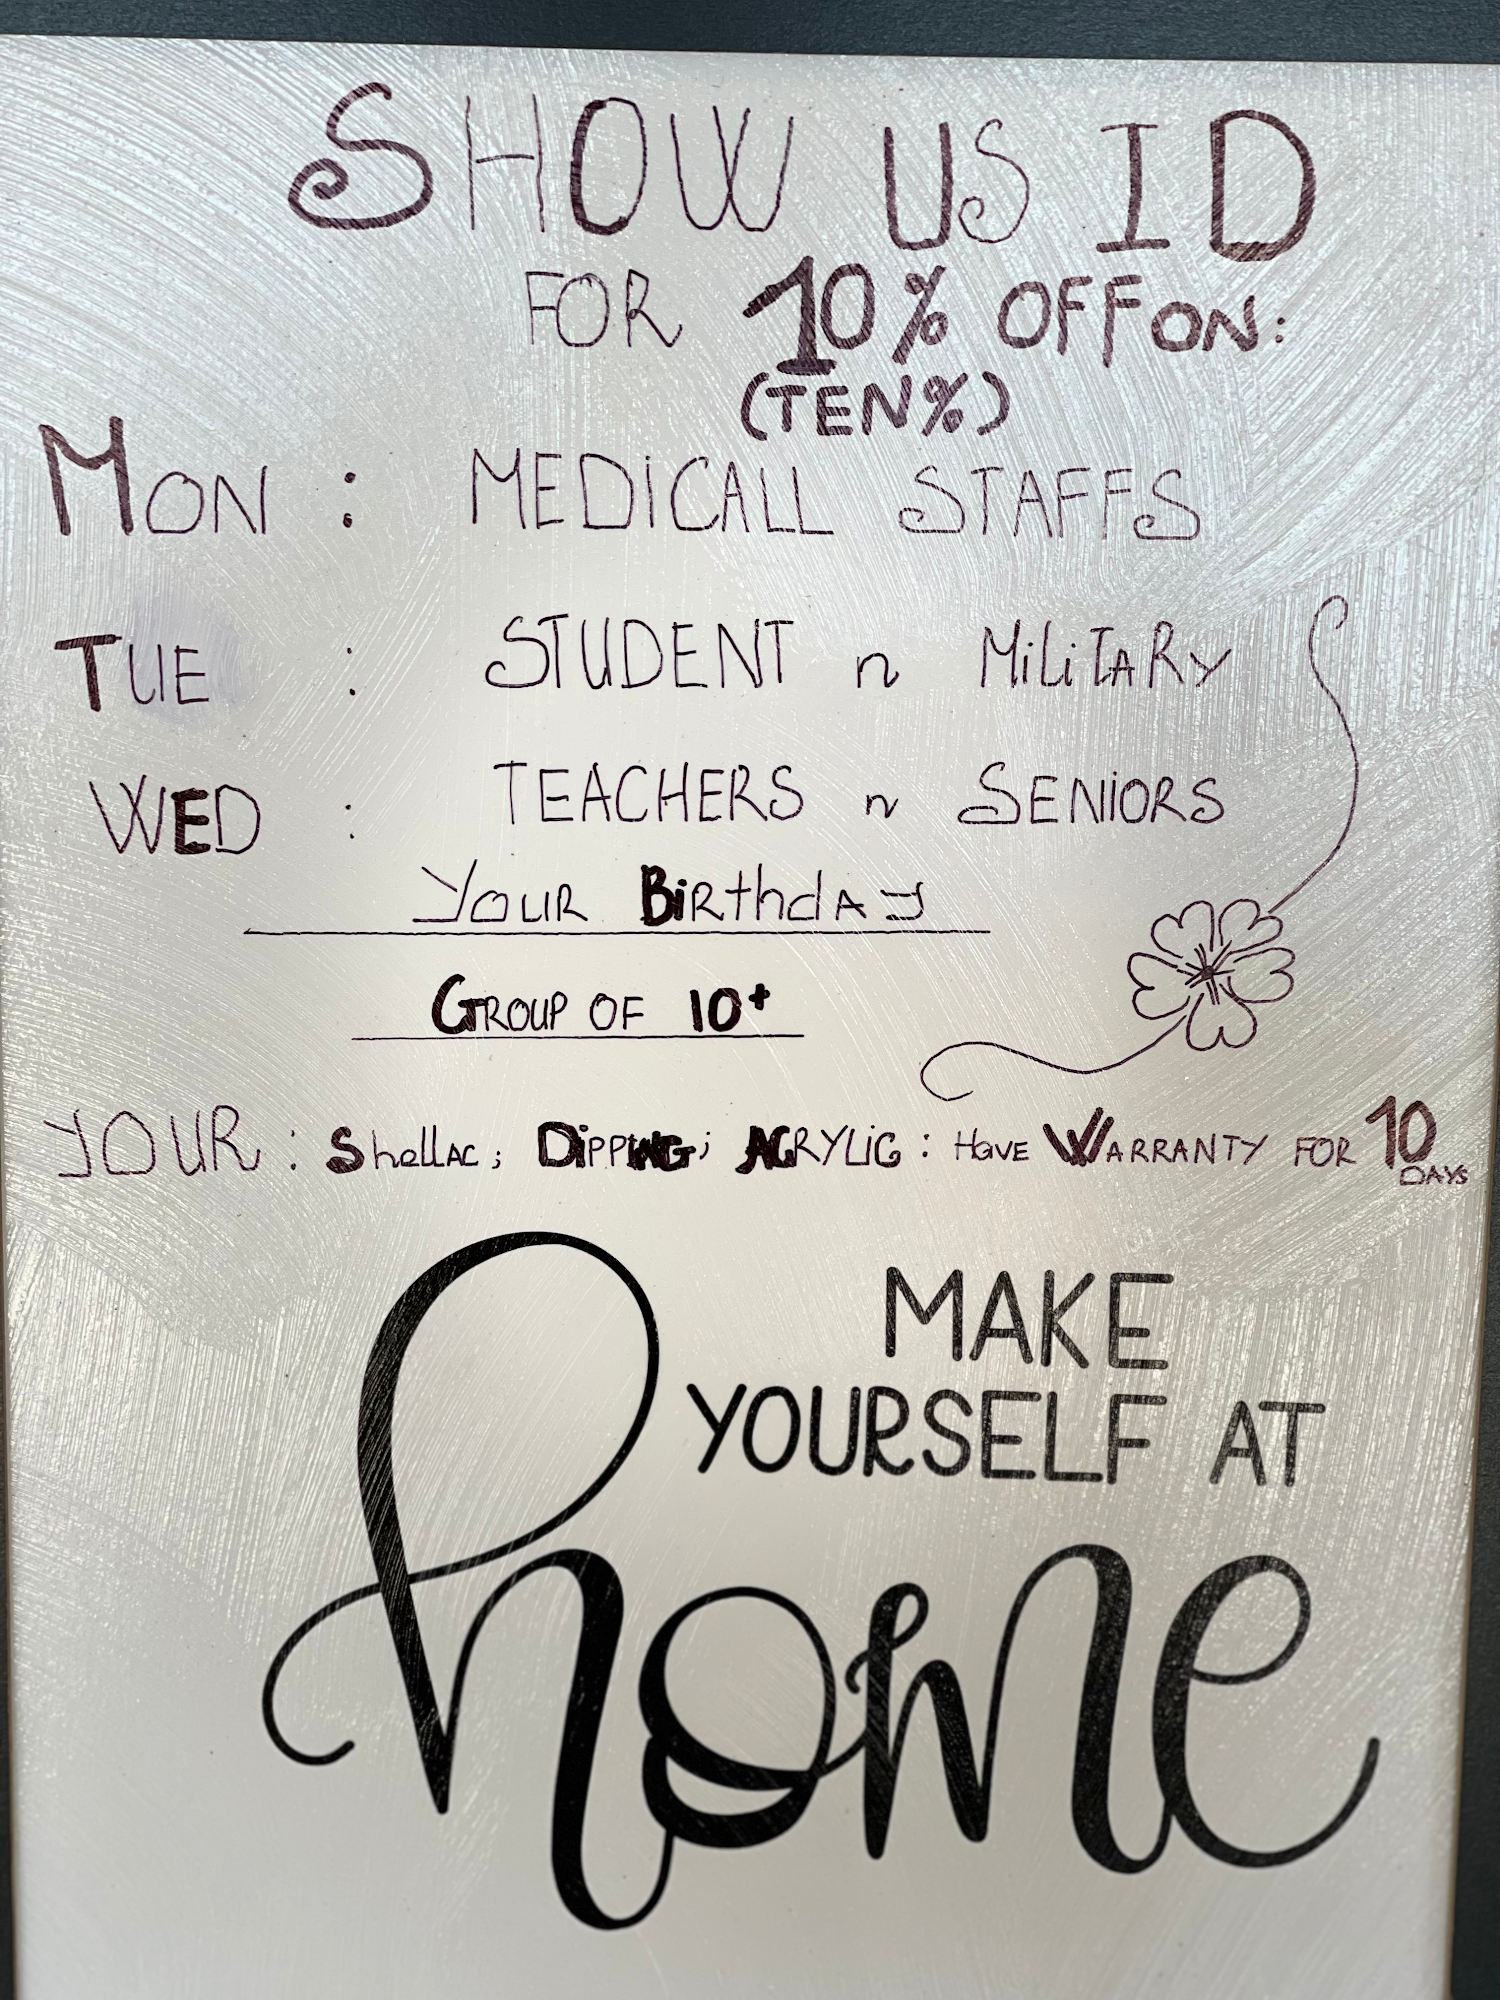 SHOW US ID
FOR 10% OFF ON:
(TEN%)
MON : MEDICALL STAFFS
TUE : STUDENT n MILITARY
WED : TEACHERS n SENIORS
YOUR BirthdAY
GROUP OF 10+
YOUR : ShellAC ; DIPPING ; ACRYLIC : HAVE WARRANTY FOR 10 DAYS
MAKE
YOURSELF AT
home